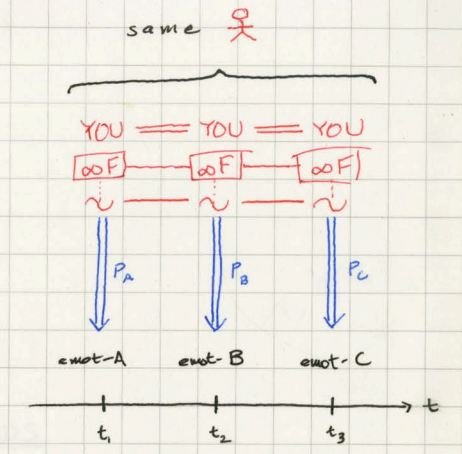 same
YOU = YOU = YOU
∞F ∞F ∞F
~ ~ ~
P_A P_B P_C
emot-A emot-B emot-C
t
t₁ t₂ t₃